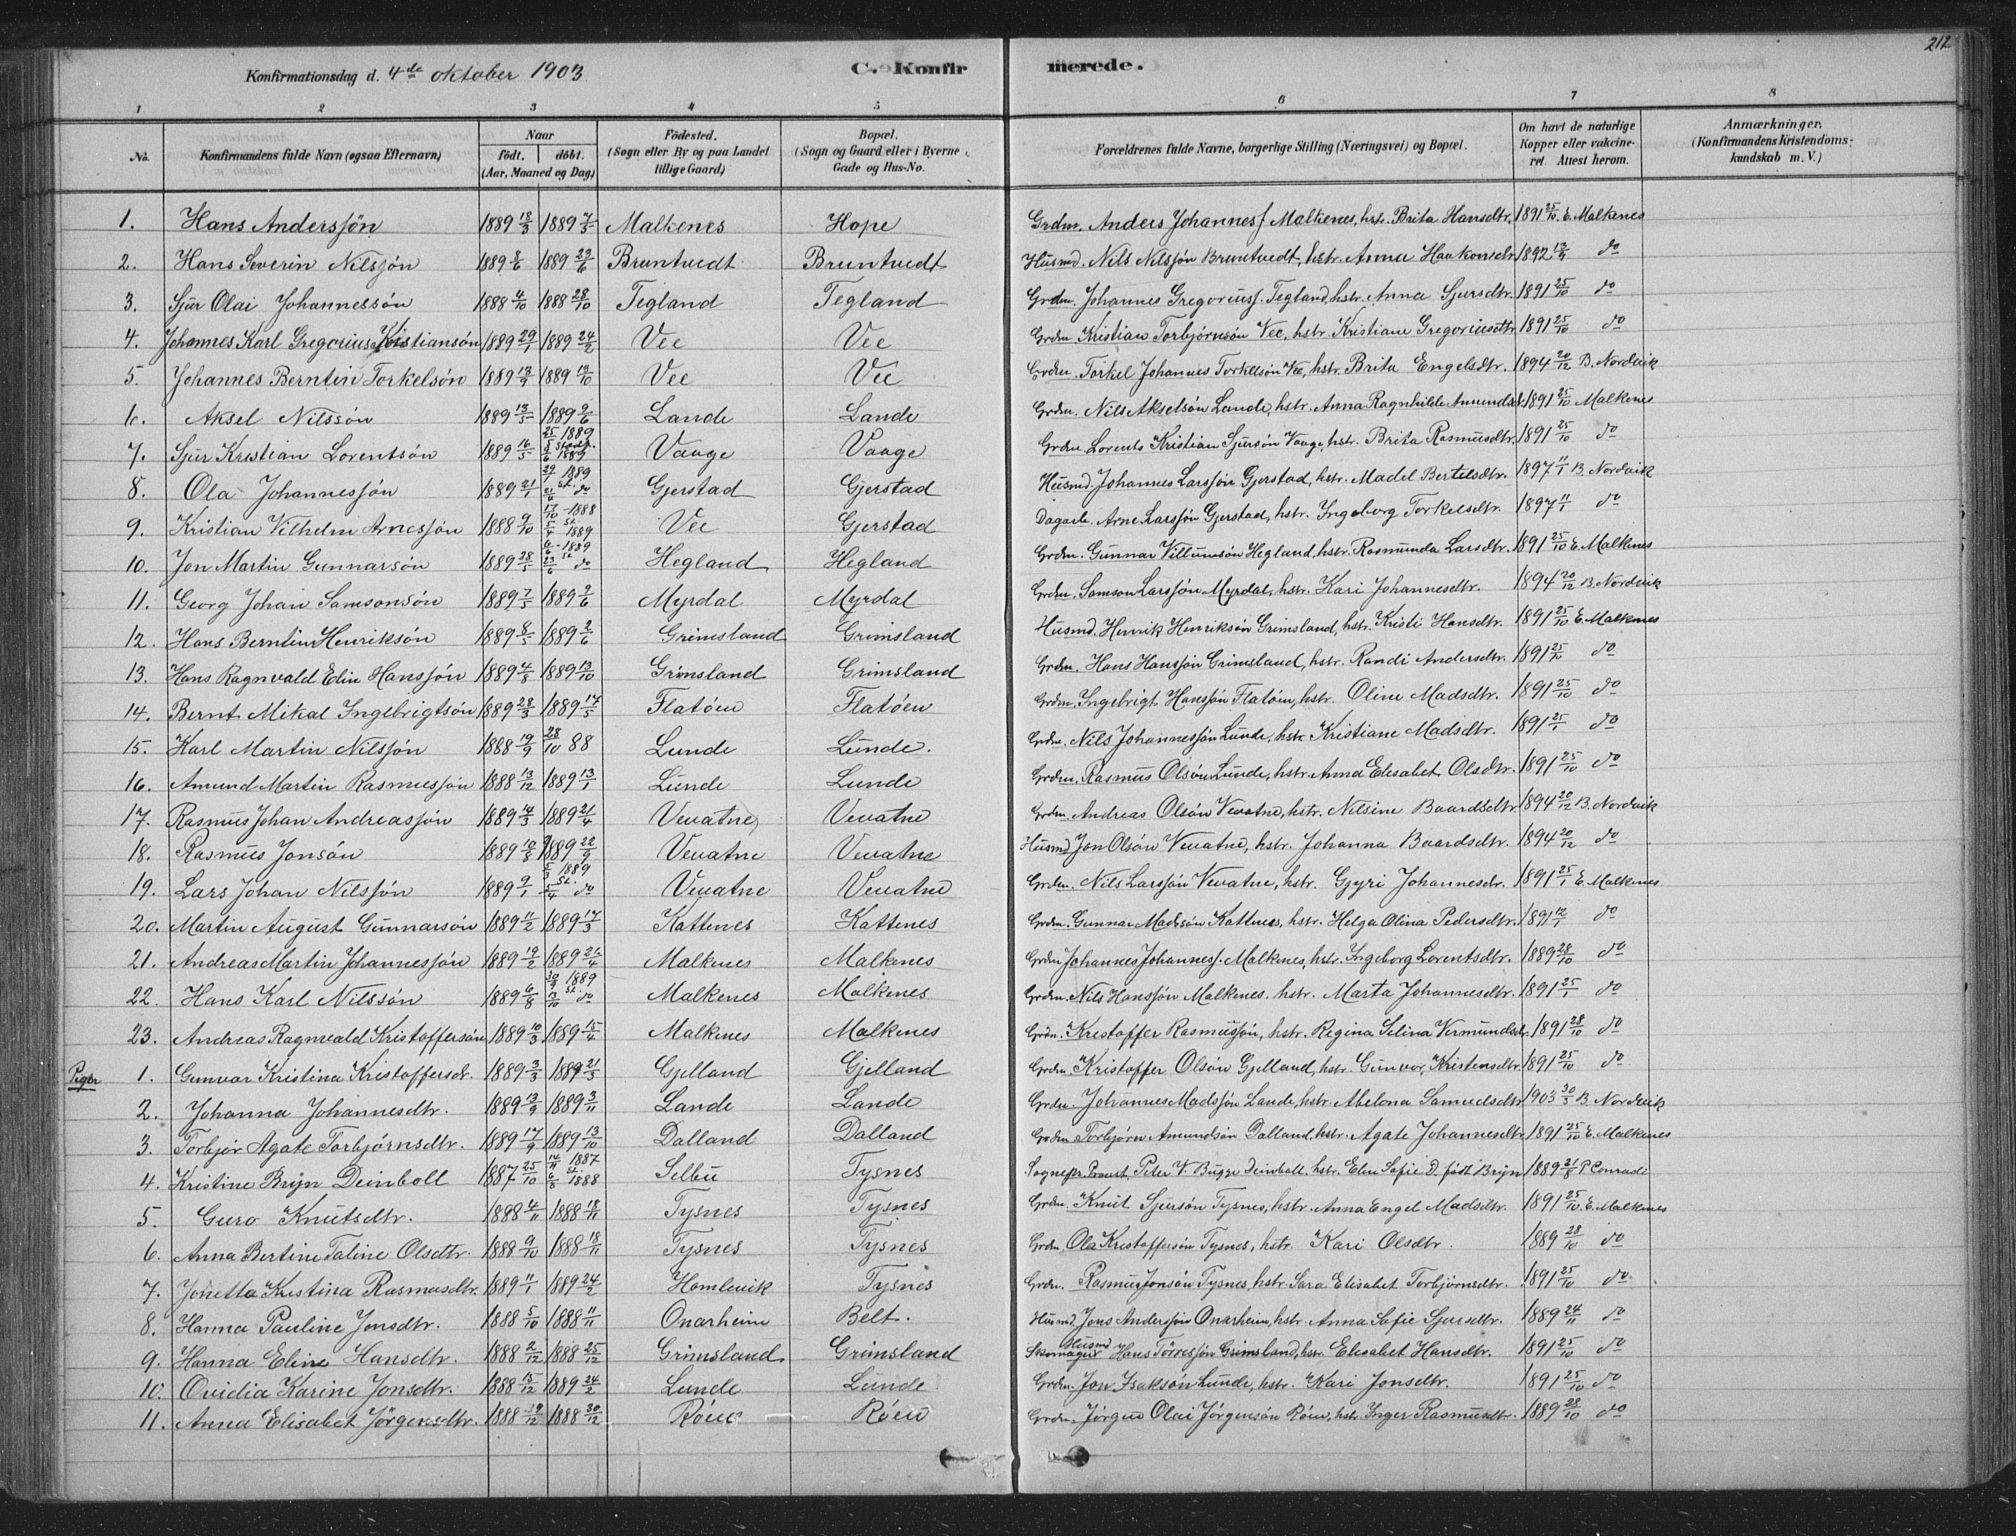 212
Konfirmationsdag d. 4de oktober 1903
C. Konfirmerede.
1 2 3 4 5 6 7 8
No. Konfirmandens fulde Navn (ogsaa Efternavn) Naar födt. döbt. (Aar, Maaned og Dag) Födested. (Sogn eller By og paa Landet tillige Gaard) Bopæl. (Sogn og Gaard eller i Byerne Gade og Hus-No. Forældrenes fulde Navne, borgerlige Stilling (Næringsvei) og Bopæl. Om havt de naturlige Kopper eller vakcineret. Attest herom. Anmærkninger. (Konfirmandens Kristendomskundskab m. V.)
1. Hans Andersson 1889 18/3 1889 7/5 Malkenes Hope Grdm. Anders Johanness. Malkenes, hstr. Brita Hansdtr. 1891 25/10 E. Malkenes
2. Hans Severin Nilsson 1889 8/6 1889 29/6 Bruntvedt Bruntvedt Husmd. Nils Nilssøn Bruntvedt, hstr. Anna Haakonsdtr. 1892 13/4 do
3. Sjur Olai Johannessøn 1888 4/10 1888 28/10 Tegland Tegland Grdm. Johannes Gregoriuss. Tegland, hstr. Anna Sjursdtr. 1891 25/10 do
4. Johannes Karl Gregorius Kristiansøn 1889 29/1 1889 24/2 Vee Vee Grdm. Kristian Torbjørnsøn Vee, hstr. Kristiane Gregoriusdtr. 1891 25/10 do
5. Johannes Berntin Torkelsøn 1889 13/9 1889 13/10 Vee Vee Grdm. Torkel Johannes Torkelsøn Vee, hstr. Brita Engelsdtr. 1894 20/12 B. Nordvik
6. Aksel Nilssøn 1889 13/5 1889 9/6 Lande Lande Grdm. Nils Akselsøn Lande, hstr. Anna Ragnhilde Amundsd. 1891 25/10 Malkenes
7. Sjur Kristian Lorentsøn 1889 16/5 25/5 1889 9/6 1889 Vaage Vaage Grdm. Lorents Kristian Sjursøn Vaage, hstr. Brita Rasmusdtr. 1891 25/10 do
8. Ola Johannessøn 1889 21/1 1889 do Gjerstad Gjerstad Husmd. Johannes Larssøn Gjerstad, hstr. Madel Bertelsdtr. 1897 11/1 B. Nordvik
9. Kristian Vilhelm Arnessøn 1888 9/10 17/10 1888 5/4 1889 Vee Gjerstad Dagarb. Arne Larssøn Gjerstad, hstr. Ingeborg Torkelsdtr. 1897 11/1 do
10. Jon Martin Gunnarsøn 1889 28/5 6/6 1889 23/6 do Hegland Hegland Grdm. Gunnar Villumsøn Hegland, hstr. Rasmunda Larsdtr. 1891 25/10 E. Malkenes
11. Georg Johan Samsonsøn 1889 7/5 1889 9/6 Myrdal Myrdal Grdm. Samson Larssøn Myrdal, hstr. Kari Johannesdtr. 1894 20/12 B. Nordvik
12. Hans Berntin Henriksøn 1889 8/5 1889 2/6 Grimsland Grimsland Husmd. Henrik Henriksøn Grimsland, hstr. Kristi Hansdtr. 1891 25/10 E. Malkenes
13. Hans Ragnvald Elin Hanssøn 1889 4/8 1889 13/10 Grimsland Grimsland Grdm. Hans Hanssøn Grimsland, hstr. Randi Andersdtr. 1891 25/10 do
14. Bernt Mikal Ingebrigtsøn 1889 28/3 1889 17/5 Flatøen Flatøen Grdm. Ingebrigt Hanssøn Flatøen, hstr. Oline Madsdtr. 1891 25/10 do
15. Karl Martin Nilssøn 1888 19/9 28/10 88 Lunde Lunde. Grdm. Nils Johannessøn Lunde, hstr. Kristiane Madsdtr. 1891 25/1 do
16. Amund Martin Rasmussøn 1888 13/12 1889 13/1 Lunde Lunde Grdm. Rasmus Olsøn Lunde, hstr. Anna Elisabet Olsdtr. 1891 25/10 do
17. Rasmus Johan Andreassøn 1889 14/3 1889 21/4 Vevatne Vevatne Grdm. Andreas Olsøn Vevatne, hstr. Nilsine Baardsdtr. 1894 20/12 B. Nordvik
18. Rasmus Jonsøn 1889 10/8 1889 22/9 Vevatne Vevatne Husmd Jon Olsøn Vevatne, hstr. Johanna Baardsdtr. 1894 20/12 do
19. Lars Johan Nilssøn 1889 9/1 1889 5/4 do Vevatne Vevatne Grdm. Nils Larssøn Vevatne, hstr. Gjyri Johannesdtr. 1891 25/1 E. Malkenes
20. Martin August Gunnarsøn 1889 11/2 1889 17/3 Kattenes Kattenes Grdm. Gunnar Madssøn Kattenes, hstr. Helga Olina Pedersdtr. 1891 do
21. Andreas Martin Johannessøn 1889 19/2 1889 21/4 Malkenes Malkenes Grdm Johannes Johanness. Malkenes, hstr. Ingeborg Lorentsdtr. 1889 28/10 do
22. Hans Karl Nilssøn 1889 6/8 1889 13/10 do Malkenes Malkenes Grdm. Nils Hanssøn Malkenes. hstr. Marta Johannesdtr. 1891 25/1 do
23. Andreas Ragnvald Kristoffersøn 1889 10/3 1889 15/4 Malkenes Malkenes Grdm. Kristoffer Rasmussøn, hstr. Regina Selina Vermundsdtr. 1891 28/10 do
Piger 1. Gunvor Kristina Kristoffersdr. 1889 3/3 1889 21/3 Gjelland Gjelland Grdm. Kristoffer Olsøn Gjelland, hstr. Gunvor Kristensdtr. 1891 25/10 do
2. Johanna Johannesdtr. 1889 13/9 1889 3/11 Lande Lande Grdm. Johannes Madssøn Lande, hstr. Abelona Samuelsdtr. 1903 30/3 B. Nordvik
3. Torbjør Agate Torbjørnsdtr. 1889 17/9 1889 13/10 Dalland Dalland Grdm Torbjørn Amundsøn Dalland, hstr. Agate Johannesdtr. 1891 25/10 E. Malkenes
4. Kristine Brijn Deinboll 1887 25/10 14/11 1887 6/8 1888 Selbu Tysnes Sognepr. Provst, Peter V. Bugge Deinboll hstr. Elen Sofie D. født Brijn 1889 21/8 P. Conradi
5. Guro Knutsdtr. 1888 4/11 1888 18/11 Tysnes Tysnes Grdm. Knut Sjursøn Tysnes, hstr. Anna Engel Madsdtr. 1891 25/10 E. Malkenes
6. Anna Bertine Taline Olsdtr. 1888 9/10 1888 18/11 Tysnes Tysnes Grdm. Ola Kristoffersøn Tysnes, hstr. Kari Olsdtr. 1889 28/10 do
7. Jonetta Kristina Rasmusdtr. 1889 11/1 1889 24/2 Humlevik Tysnes Grdm. Rasmus Jonsøn Tysnes, hstr. Sara Elisabet Torbjørnsdtr. 1891 25/10 do
8. Hanna Pauline Jonsdtr. 1888 5/10 1888 11/11 Onarheim Belt. Husmd. Jons Anderssøn Onarheim, hstr. Anna Sofie Sjursdtr. 1889 24/11 do
9. Hanna Eline Hansdtr. 1888 2/12 1888 25/12 Grimsland Grimsland Husmd Skomager Hans Tørressøn Grimsland, hstr. Elisabet Hansdtr. 1891 25/10 do
10. Ovidia Karine Jonsdtr. 1888 15/12 1889 24/2 Lunde Lunde Grdm. Jon Isaksøn Lunde, hstr. Kari Jonsdtr. 1891 25/10 do
11. Anna Elisabet Jörgensdtr. 1888 12 1888 30/12 Røen Røen Grdm. Jørgen Olai Jørgensøn Røen, hstr. Inger Rasmusdtr. 1889 28/10 do